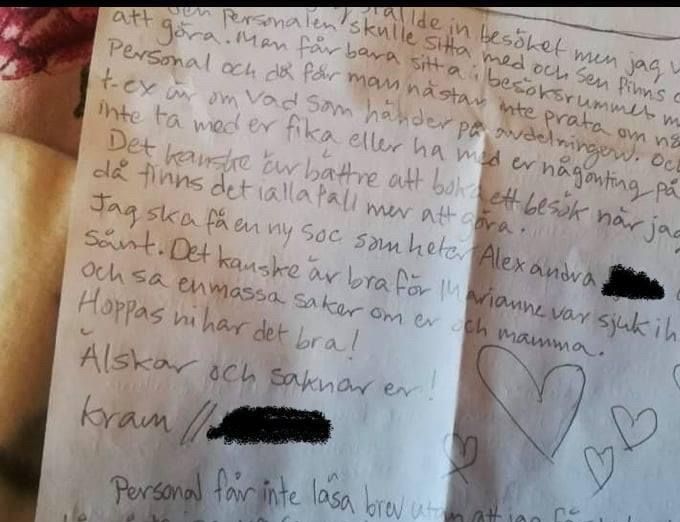 ställde in besöket men jag v
den personalen skulle sitta med och sen finns
att göra. Man får bara sitta i besöksrummet m
personal och då får man nästan inte prata om nå
t-ex är om vad som händer på avdelningen. Och
inte ta med er fika eller ha med er någonting på
Det kanske är bättre att boka ett besök när jag
då finns det iallafall mer att göra.
Jag ska få en ny soc som heter Alexandra
sånt. Det kanske är bra för Marianne var sjuk i h
och sa en massa saker om er och mamma.
Hoppas ni har det bra!
Älskar och saknar er!
kram //
Personal får inte läsa brev utan att jag